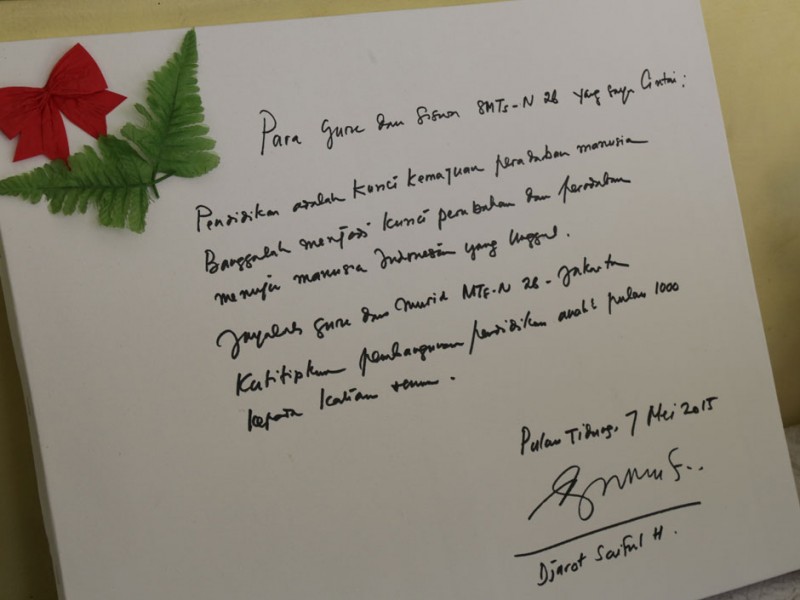 Para Guru dan Siswa SMTs-N 28 yang saya Cintai :
Pendidikan adalah kunci kemajuan peradaban manusia
Banggalah menjadi kunci perubahan dan peradaban
menuju manusia Indonesia yang Unggul.
Jayalah guru dan murid MTs-N 28 - Jakarta
Kutitipkan pembangunan pendidikan anak2 pulau 1000
kepada kalian semua.
Pulau Tidung, 7 Mei 2015
Djarot Saiful H.